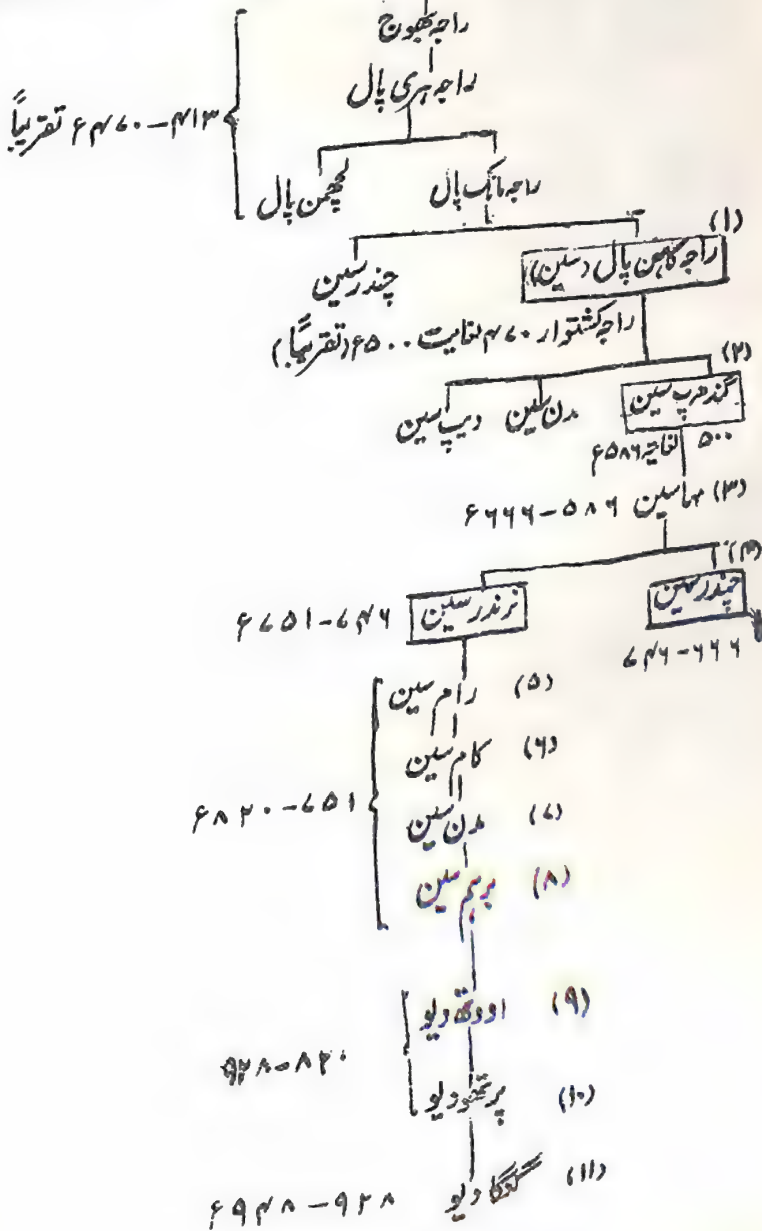 راجہ بھوج
راجہ ہری پال
۴۱۳-۴۷۰ء تقریباً
راجہ مانک پال لچھمن پال
(۱)
راجہ کاہن پال (سین) چندر سین
راجہ کشتواڑ ۴۷۰ لغایت ۵۰۰ء (تقریباً)
(۲)
گندھرپ سین مدن سین دیپ سین
۵۰۰ لغایۃ ۵۸۶ء
(۳) مہاسین ۵۸۶-۶۶۶ء
(۴)
چندر سین نرندر سین ۷۴۶-۷۵۱ء
۶۶۶-۷۴۶
(۵) رام سین
(۶) کام سین
۷۵۱-۸۲۰ء
(۷) مدن سین
(۸) برہم سین
(۹) اودتھ دیو
۸۲۰-۹۲۸
(۱۰) پرتھو دیو
(۱۱) گگا دیو ۹۲۸-۹۴۸ء